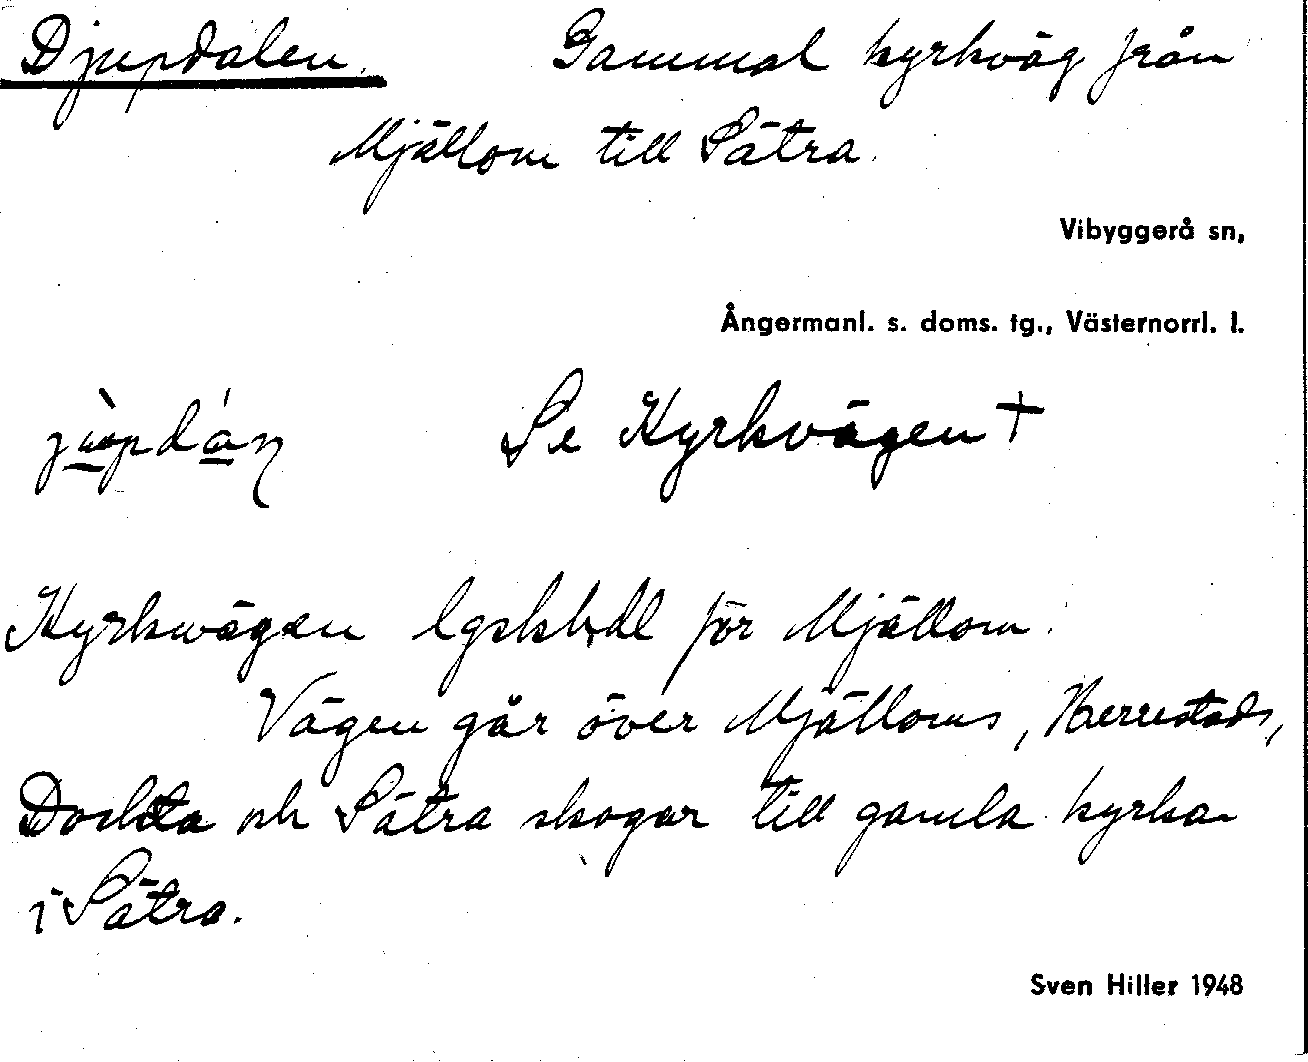 Djupdalen. Gammal kyrkväg från
Mjällom till Sätra.
Vibyggerå sn,
Ångermanl. s. doms. tg., Västernorrl. l.
Se Kyrkvägen +
Kyrkvägen lgskbdl för Mjällom.
Vägen går över Mjälloms, Herrestads,
Docksta och Sätra skogar till gamla kyrkan
i Sätra.
Sven Hiller 1948